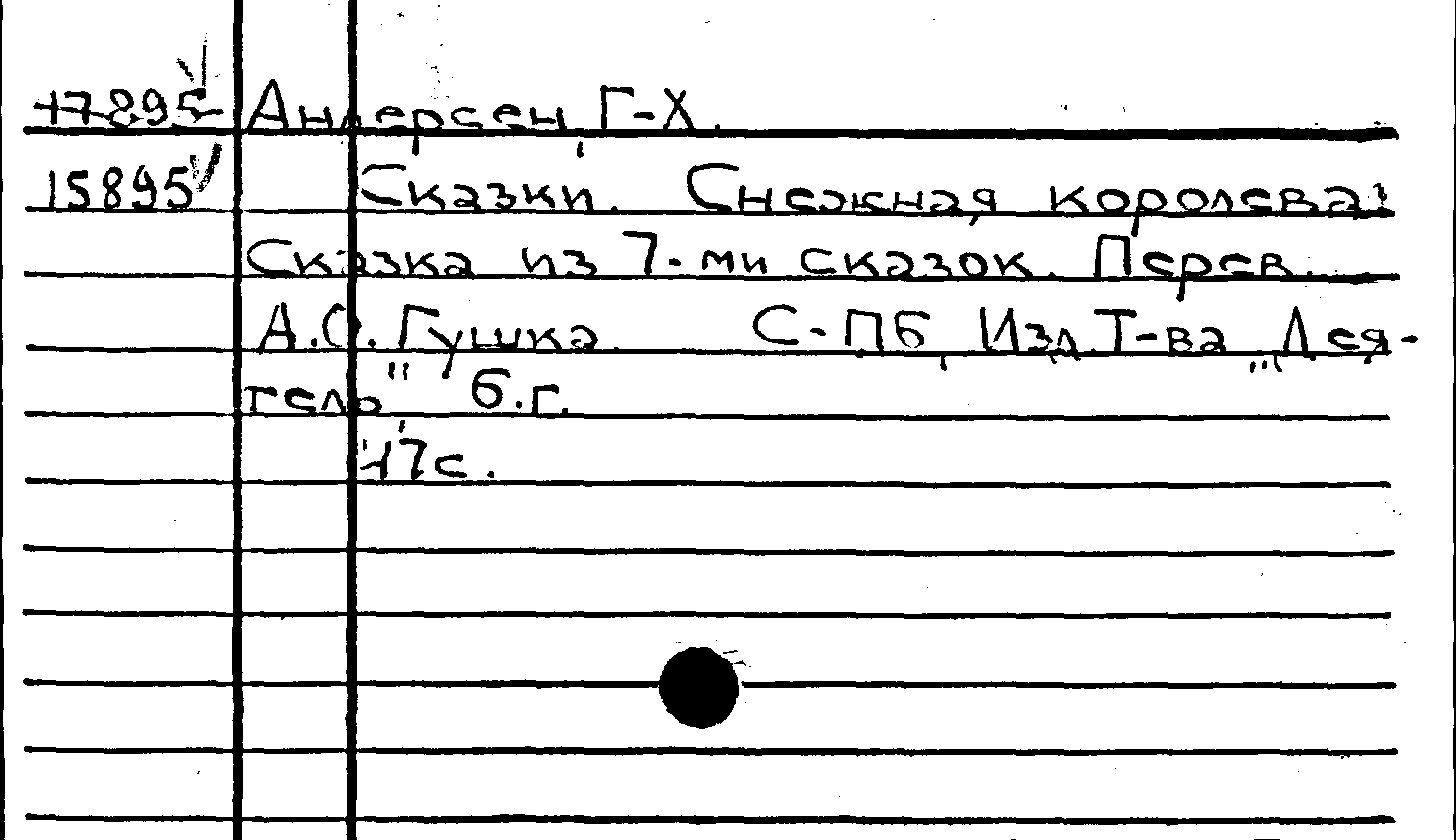 17895 Андерсен, Г-Х.
15895 Сказки. Снежная королева:
Сказка из 7-ми сказок. Перев.
А.О. Гушка. С-Пб, Изд. Т-ва „Дея-
тель" б.г.
47с.